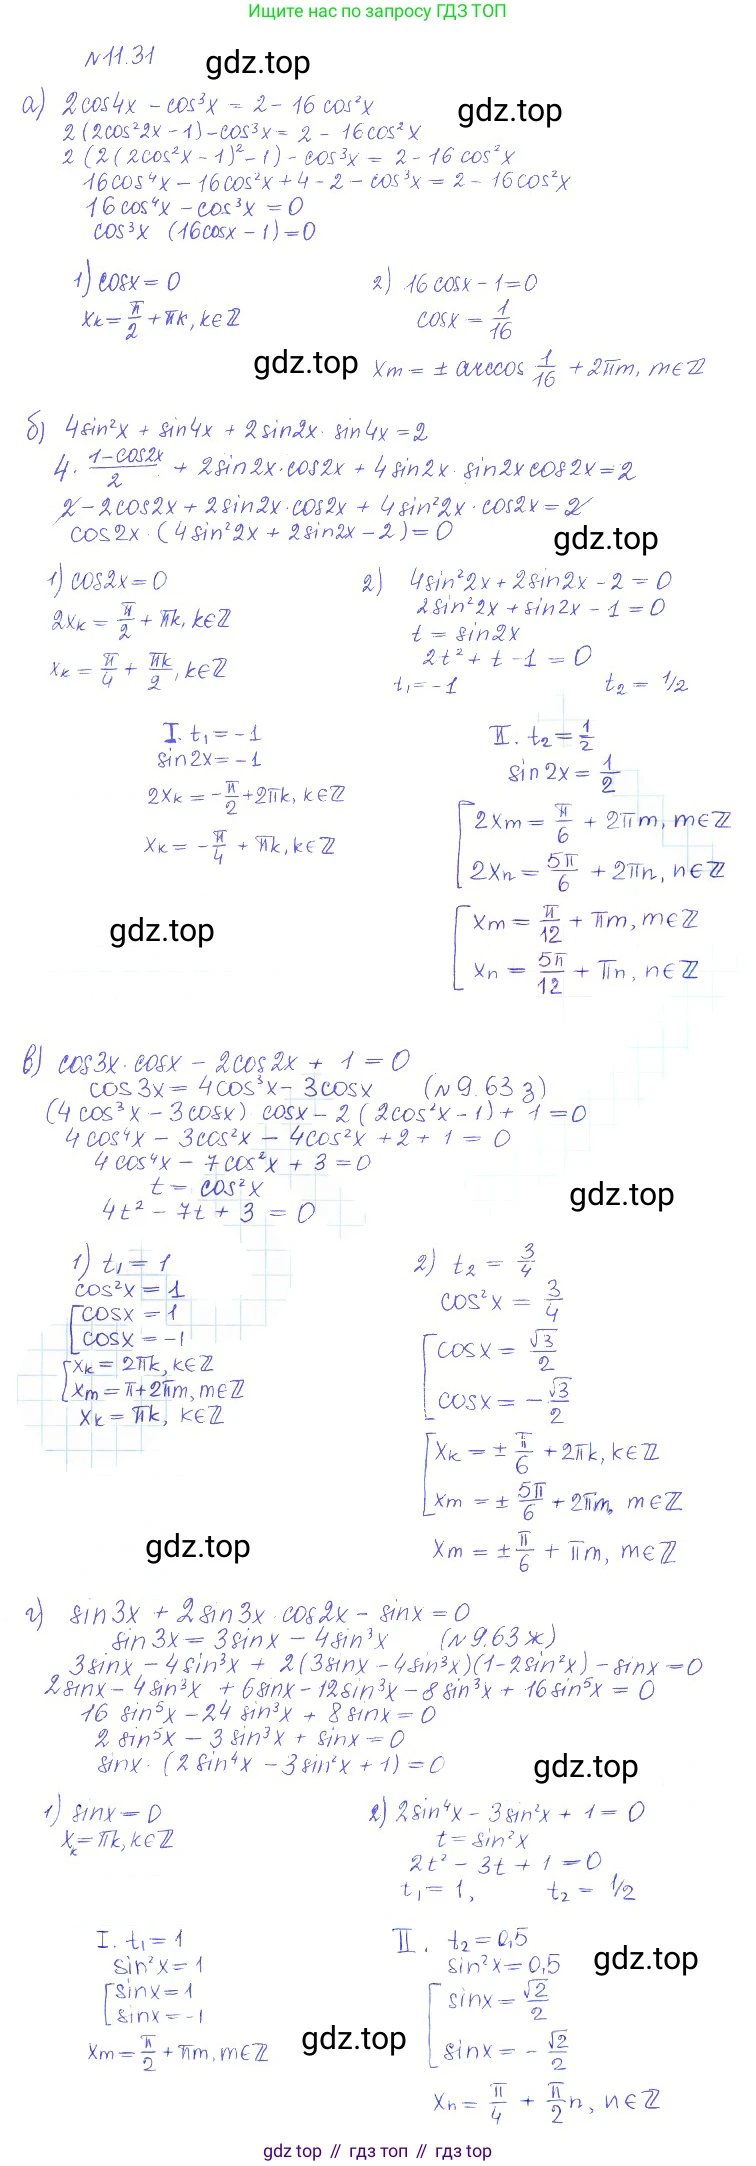 Ищите нас по запросу ГДЗ ТОП
№11.31
gdz.top
а) 2cos4x - cos³x = 2 - 16 cos²x
gdz.top
2(2cos²2x - 1) - cos³x = 2 - 16cos²x
2(2(2cos²x - 1)² - 1) - cos³x = 2 - 16 cos²x
16cos⁴x - 16cos²x + 4 - 2 - cos³x = 2 - 16cos²x
16cos⁴x - cos³x = 0
cos³x (16cosx - 1) = 0
1) cosx = 0 2) 16cosx - 1 = 0
xₖ = π/2 + πk, k∈ℤ cosx = 1/16
gdz.top xₘ = ± arccos 1/16 + 2πm, m∈ℤ
б) 4sin²x + sin4x + 2sin2x · sin4x = 2
4 · (1-cos2x)/2 + 2sin2x·cos2x + 4sin2x · sin2x cos2x = 2
2 - 2cos2x + 2sin2x·cos2x + 4sin²2x · cos2x = 2
cos2x · (4sin²2x + 2sin2x - 2) = 0
gdz.top
1) cos2x = 0 2) 4sin²2x + 2sin2x - 2 = 0
2xₖ = π/2 + πk, k∈ℤ 2sin²2x + sin2x - 1 = 0
t = sin2x
xₖ = π/4 + πk/2, k∈ℤ 2t² + t - 1 = 0
t₁ = -1 t₂ = 1/2
I. t₁ = -1 II. t₂ = 1/2
sin2x = -1 sin2x = 1/2
2xₖ = -π/2 + 2πk, k∈ℤ [2xₘ = π/6 + 2πm, m∈ℤ
xₖ = -π/4 + πk, k∈ℤ 2xₙ = 5π/6 + 2πn, n∈ℤ
gdz.top [xₘ = π/12 + πm, m∈ℤ
xₙ = 5π/12 + πn, n∈ℤ
в) cos3x·cosx - 2cos2x + 1 = 0
cos3x = 4cos³x - 3cosx (№9.63 з)
(4cos³x - 3cosx) cosx - 2(2cos²x - 1) + 1 = 0
4cos⁴x - 3cos²x - 4cos²x + 2 + 1 = 0
4cos⁴x - 7cos²x + 3 = 0
t = cos²x
gdz.top
4t² - 7t + 3 = 0
1) t₁ = 1 2) t₂ = 3/4
cos²x = 1 cos²x = 3/4
[cosx = 1 [cosx = √3/2
cosx = -1 cosx = -√3/2
[xₖ = 2πk, k∈ℤ
xₘ = π+2πm, m∈ℤ
xₖ = πk, k∈ℤ
[xₖ = ± π/6 + 2πk, k∈ℤ
xₘ = ± 5π/6 + 2πm, m∈ℤ
gdz.top xₘ = ± π/6 + πm, m∈ℤ
г) sin3x + 2sin3x·cos2x - sinx = 0
sin3x = 3sinx - 4sin³x (№9.63 ж)
3sinx - 4sin³x + 2(3sinx - 4sin³x)(1-2sin²x) - sinx = 0
2sinx - 4sin³x + 6sinx - 12sin³x - 8sin³x + 16sin⁵x = 0
16 sin⁵x - 24 sin³x + 8sinx = 0
2 sin⁵x - 3sin³x + sinx = 0
sinx·(2sin⁴x - 3sin²x + 1) = 0
gdz.top
1) sinx = 0 2) 2sin⁴x - 3sin²x + 1 = 0
xₖ = πk, k∈ℤ t = sin²x
2t² - 3t + 1 = 0
t₁ = 1, t₂ = 1/2
I. t₁ = 1 II. t₂ = 0,5
sin²x = 1 sin²x = 0,5
gdz.top
[sinx = 1 [sinx = √2/2
sinx = -1 sinx = -√2/2
gdz.top
xₘ = π/2 + πm, m∈ℤ
xₙ = π/4 + π/2 n, n∈ℤ
gdz top // гдз топ // gdz top